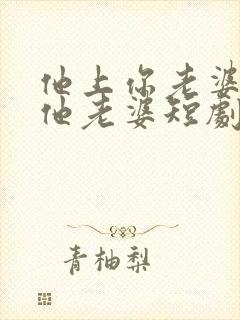 他上你老婆
他老婆短劇
青柚梨